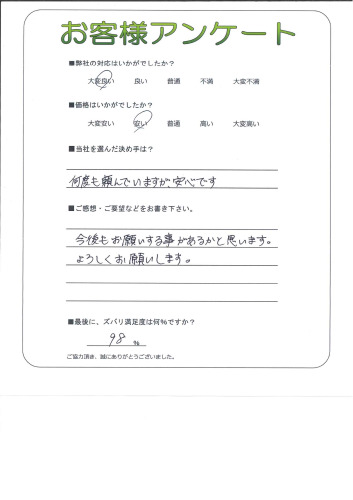 お客様アンケート
■弊社の対応はいかがでしたか?
大変良い 良い 普通 不満 大変不満
■価格はいかがでしたか?
大変安い 安い 普通 高い 大変高い
■当社を選んだ決め手は?
何度も頼んでいますが安心です
■ご感想・ご要望などをお書き下さい。
今後もお願いする事があるかと思います。
よろしくお願いします。
■最後に、ズバリ満足度は何%ですか?
98 %
ご協力頂き、誠にありがとうございました。